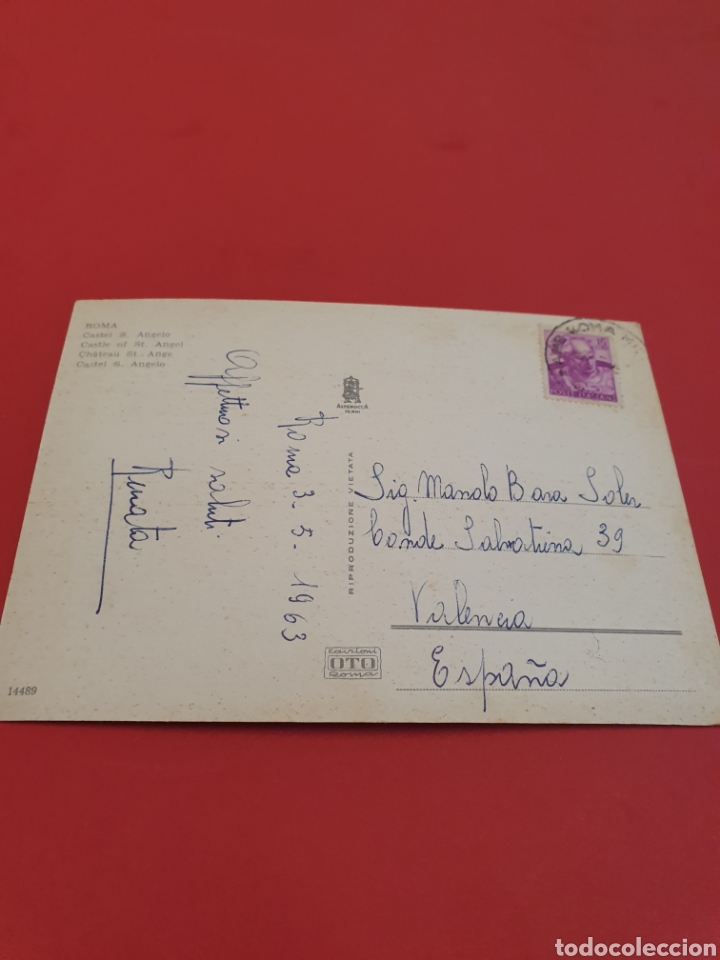 ROMA
Castel S. Angelo
Castle of St. Angel
Château St. Ange
Castel S. Angelo
Roma 3-5-1963
Affettuosi saluti
Renata
ALTEROCCA
TERNI
RIPRODUZIONE VIETATA
Edizioni
OTO
Roma
ROMA
POSTE ITALIANE
Sig. Manolo Bara Soler
Conde Salvatierra 39
Valencia
España
14489
todocoleccion